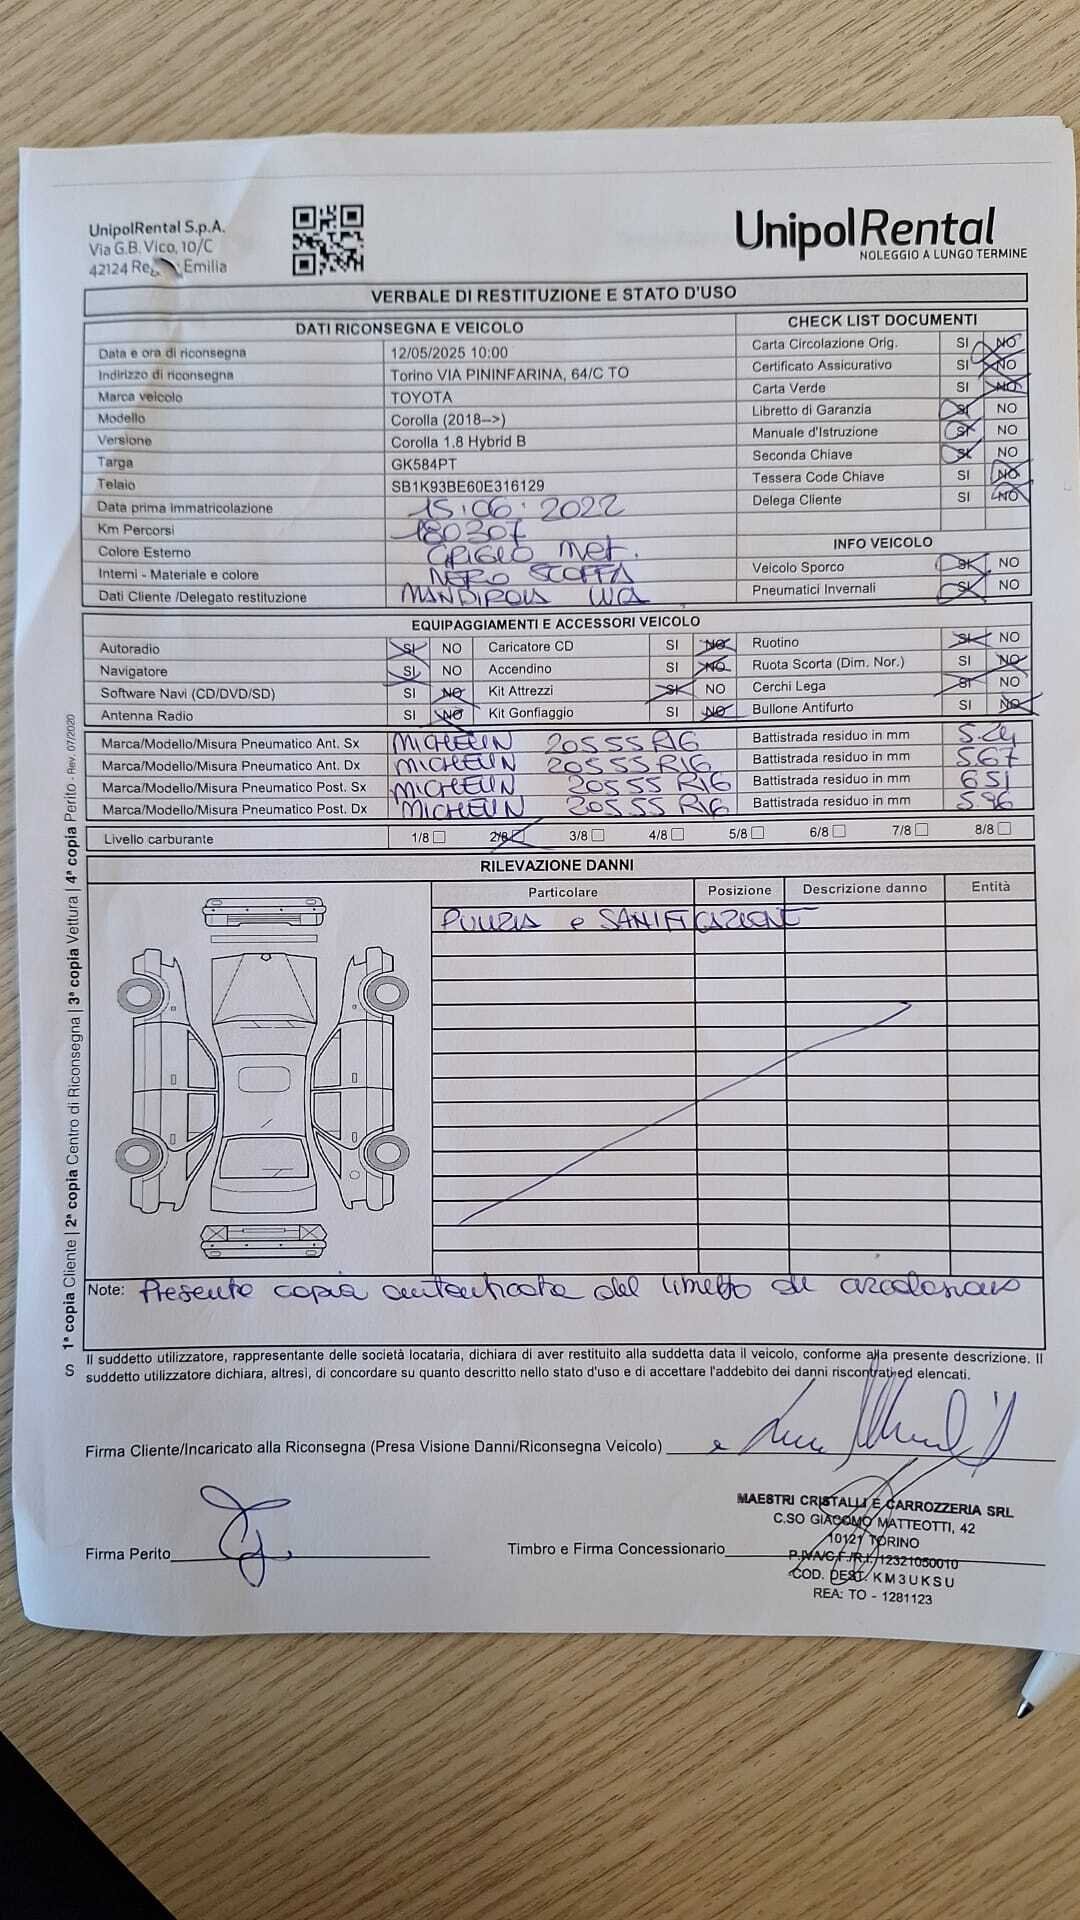 UnipolRental S.p.A.
Via G.B. Vico, 10/C
42124 Emilia
UnipolRental
NOLEGGIO A LUNGO TERMINE
VERBALE DI RESTITUZIONE E STATO D'USO
DATI RICONSEGNA E VEICOLO
Data e ora di riconsegna 12/05/2025 10:00
Indirizzo di riconsegna Torino VIA PININFARINA, 64/C TO
Marca veicolo TOYOTA
Modello Corolla (2018-->)
Versione Corolla 1.8 Hybrid B
Targa GK584PT
Telaio SB1K93BE60E316129
Data prima immatricolazione 15.06.2022
Km Percorsi 180307
Colore Esterno GRIGIO Met.
Interni - Materiale e colore NERO STOFFA
Dati Cliente /Delegato restituzione MANDIROLA LUCA
CHECK LIST DOCUMENTI
Carta Circolazione Orig. SI NO
Certificato Assicurativo SI NO
Carta Verde SI NO
Libretto di Garanzia SI NO
Manuale d'Istruzione SI NO
Seconda Chiave SI NO
Tessera Code Chiave SI NO
Delega Cliente SI NO
INFO VEICOLO
Veicolo Sporco SI NO
Pneumatici Invernali SI NO
EQUIPAGGIAMENTI E ACCESSORI VEICOLO
Autoradio SI NO Caricatore CD SI NO Ruotino SI NO
Navigatore SI NO Accendino SI NO Ruota Scorta (Dim. Nor.) SI NO
Software Navi (CD/DVD/SD) SI NO Kit Attrezzi SI NO Cerchi Lega SI NO
Antenna Radio SI NO Kit Gonfiaggio SI NO Bullone Antifurto SI NO
Marca/Modello/Misura Pneumatico Ant. Sx MICHELIN 20555 R16 Battistrada residuo in mm 5.24
Marca/Modello/Misura Pneumatico Ant. Dx MICHELIN 20555 R16 Battistrada residuo in mm 5.67
Marca/Modello/Misura Pneumatico Post. Sx MICHELIN 20555 R16 Battistrada residuo in mm 6.51
Marca/Modello/Misura Pneumatico Post. Dx MICHELIN 20555 R16 Battistrada residuo in mm 5.96
Livello carburante 1/8 2/8 3/8 4/8 5/8 6/8 7/8 8/8
RILEVAZIONE DANNI
Particolare Posizione Descrizione danno Entità
PULIZIA e SANIFICAZIONE
Note: Presente copia autenticata del libretto di
1ª copia Cliente | 2ª copia Centro di Riconsegna | 3ª copia Vettura | 4ª copia Perito - Rev. 07/2020
S
Il suddetto utilizzatore, rappresentante delle società locataria, dichiara di aver restituito alla suddetta data il veicolo, conforme alla presente descrizione. Il
suddetto utilizzatore dichiara, altresì, di concordare su quanto descritto nello stato d'uso e di accettare l'addebito dei danni riscontrati ed elencati.
Firma Cliente/Incaricato alla Riconsegna (Presa Visione Danni/Riconsegna Veicolo)
Firma Perito
Timbro e Firma Concessionario
MAESTRI CRISTALLI E CARROZZERIA SRL
C.SO GIACOMO MATTEOTTI, 42
10121 TORINO
P.IVA/C.F./R.I. 12321050010
COD. DEST. KM3UKSU
REA: TO - 1281123